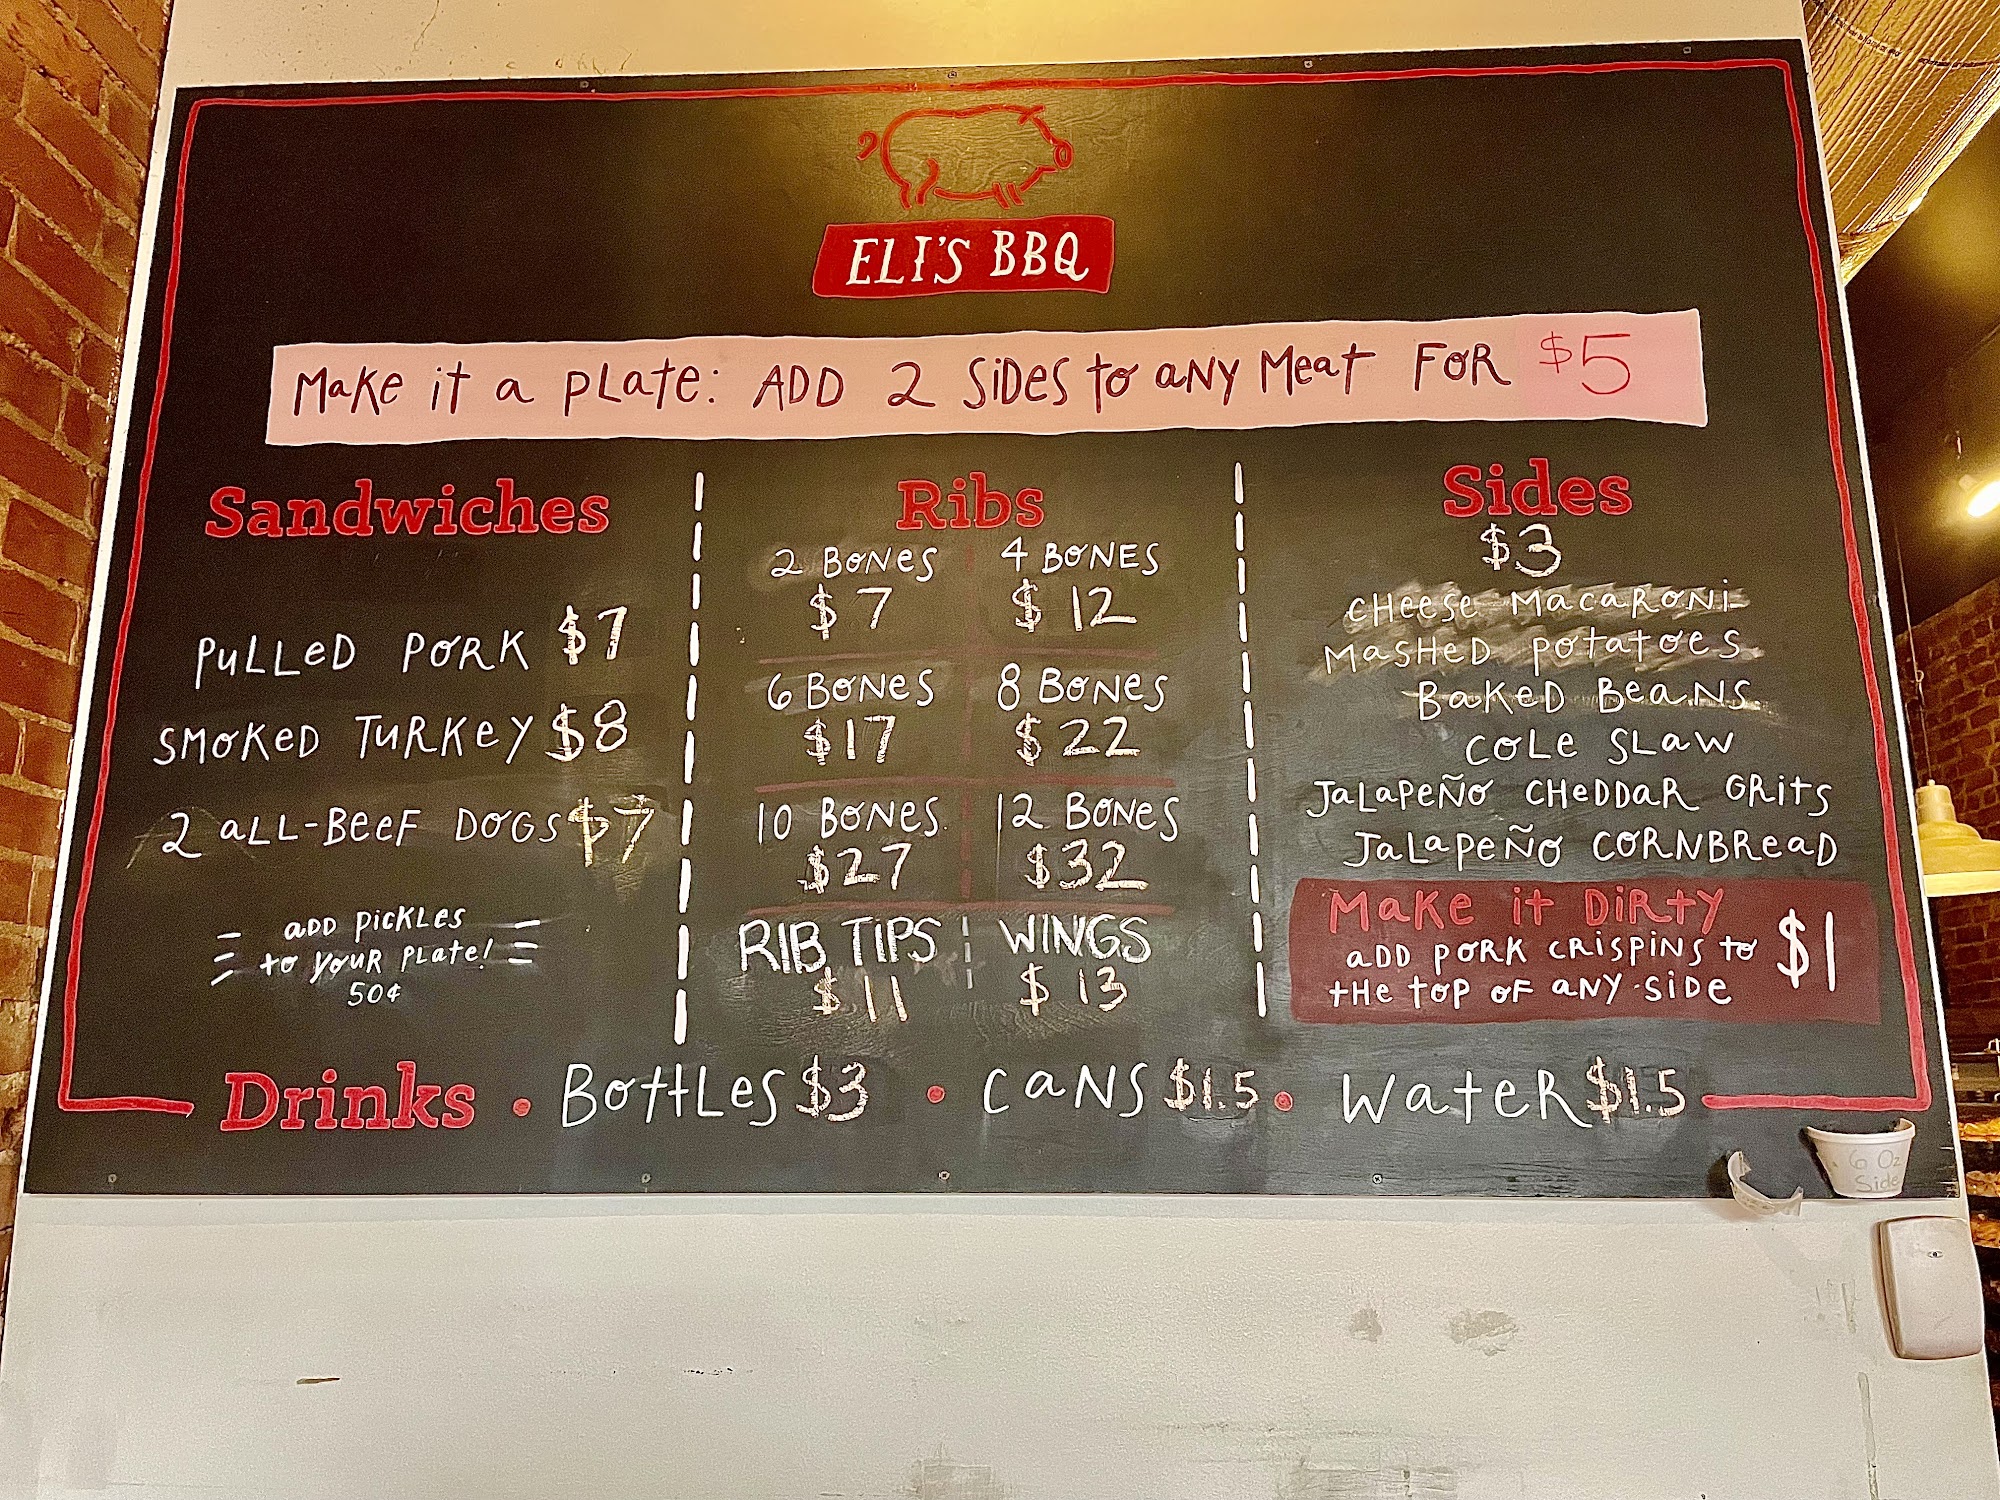 ELI'S BBQ
Make it a Plate: ADD 2 Sides to any Meat for $5
Sandwiches
Pulled Pork $7
Smoked Turkey $8
2 all-beef dogs $7
add pickles
to your plate!
50¢
Ribs
2 Bones 4 Bones
$7 $12
6 Bones 8 Bones
$17 $22
10 Bones 12 Bones
$27 $32
RIB TIPS WINGS
$11 $13
Sides
$3
Cheese Macaroni
Mashed Potatoes
Baked Beans
Cole Slaw
Jalapeño Cheddar Grits
Jalapeño Cornbread
Make it Dirty
add pork crispins to $1
the top of any side
Drinks • Bottles $3 • Cans $1.5 • Water $1.5
6 Oz
Side